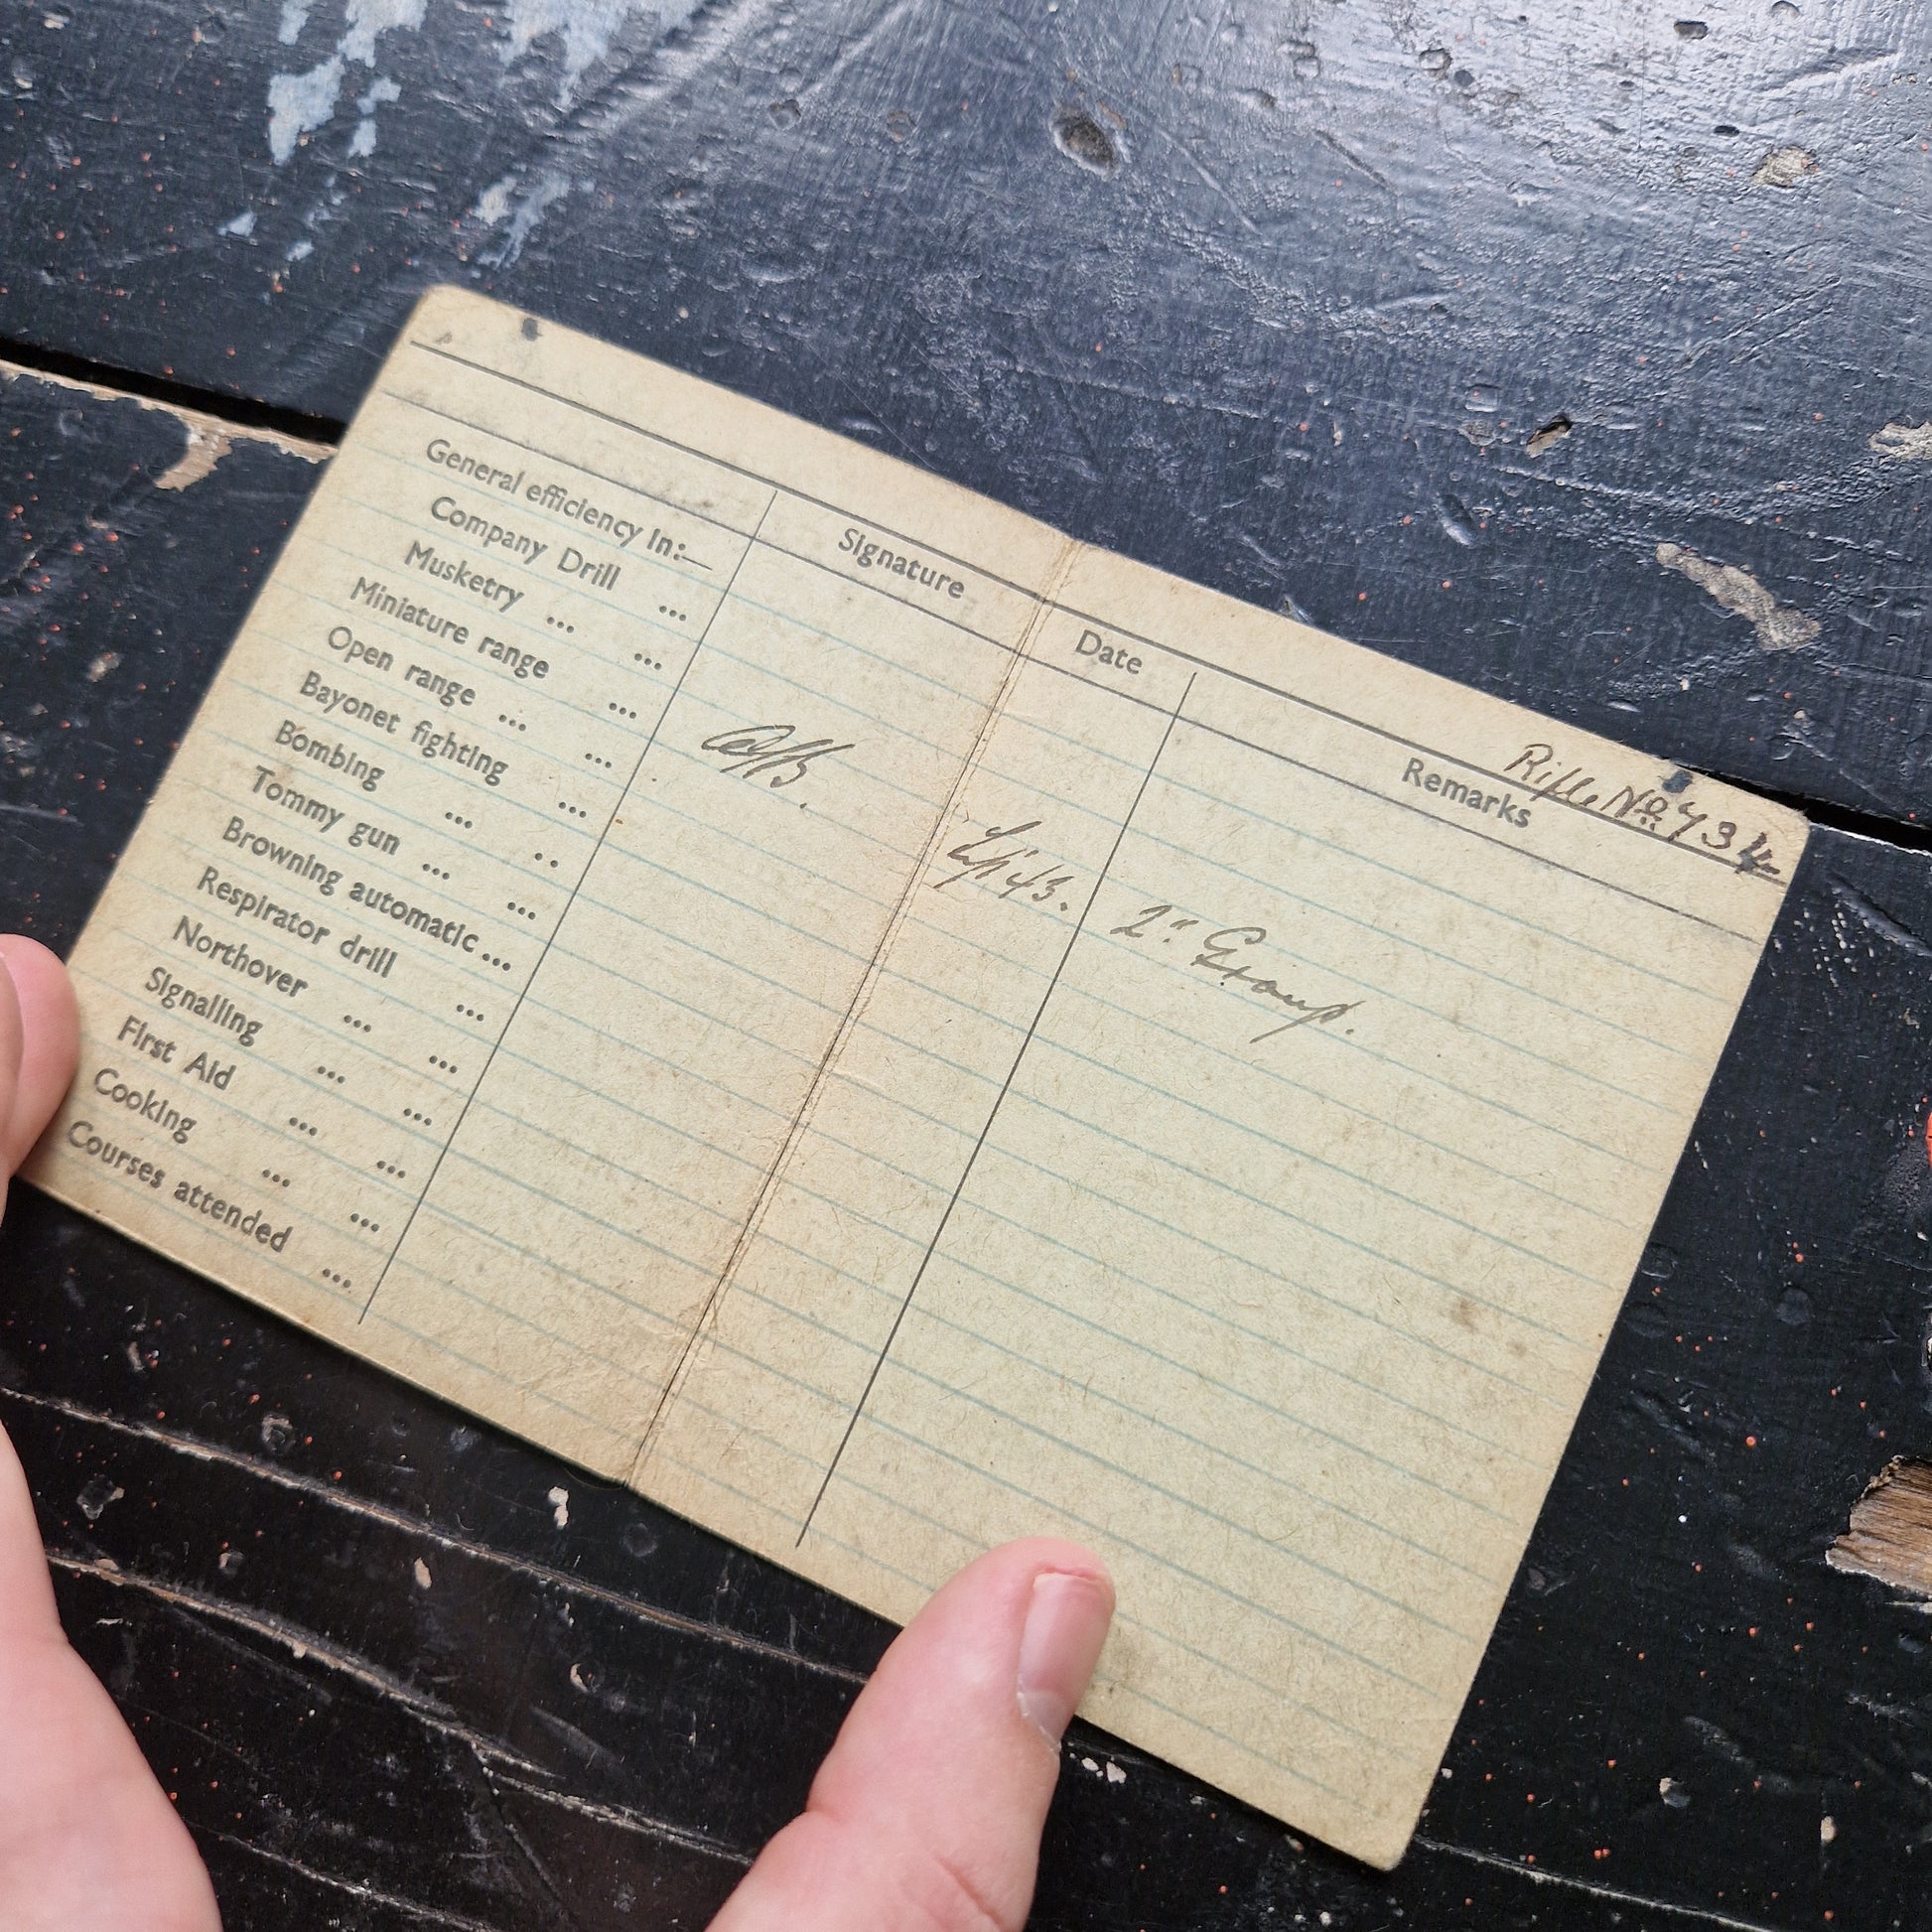 Rifle No. 734
Signature Date Remarks
General efficiency in:—
Company Drill ...
Musketry ... ...
Miniature range ...
Open range ... ...
Bayonet fighting ... 2" Group.
Bombing ... ..
Tommy gun ... ...
Browning automatic ...
Respirator drill ...
Northover ... ...
Signalling ... ...
First Aid ... ...
Cooking ... ...
Courses attended ...